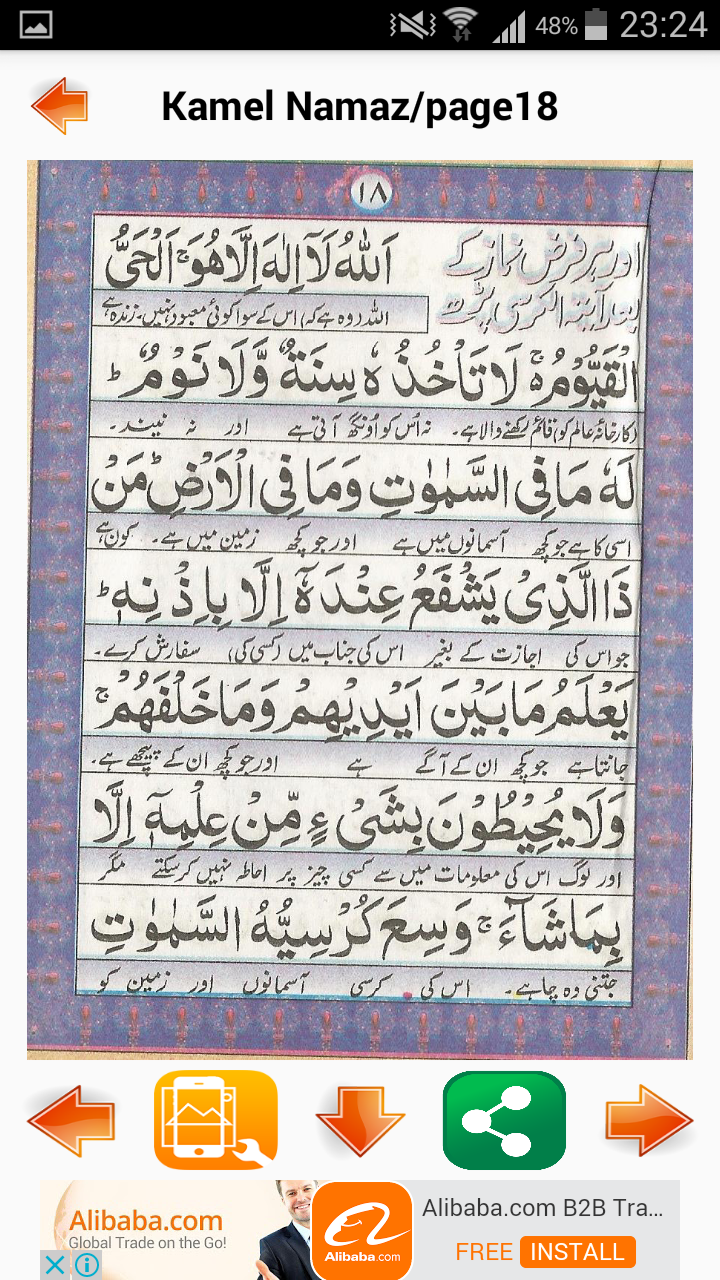 48% 23:24
Kamel Namaz/page18
١٨
اور ہر فرض نماز کے
بعد آیۃ الکرسی پڑھے
اَللّٰهُ لَاۤ اِلٰهَ اِلَّا هُوَۚ اَلْحَیُّ
اللہ (وہ ہے کہ) اس کے سوا کوئی معبود نہیں۔ زندہ ہے
الْقَیُّوْمُ۬ۚ لَا تَاْخُذُهٗ سِنَةٌ وَّلَا نَوْمٌؕ
(کارخانۂ عالم کو) قائم رکھنے والا ہے۔ نہ اُس کو اُونگھ آتی ہے اور نہ نیند۔
لَهٗ مَا فِی السَّمٰوٰتِ وَمَا فِی الْاَرْضِؕ مَنْ
اسی کا ہے جو کچھ آسمانوں میں ہے اور جو کچھ زمین میں ہے۔ کون ہے
ذَا الَّذِیْ یَشْفَعُ عِنْدَهٗۤ اِلَّا بِاِذْنِهٖؕ
جو اس کی اجازت کے بغیر اس کی جناب میں (کسی کی) سفارش کرے۔
یَعْلَمُ مَا بَیْنَ اَیْدِیْهِمْ وَمَا خَلْفَهُمْۚ
جانتا ہے جو کچھ ان کے آگے ہے اور جو کچھ ان کے پیچھے ہے۔
وَلَا یُحِیْطُوْنَ بِشَیْءٍ مِّنْ عِلْمِهٖۤ اِلَّا
اور لوگ اس کی معلومات میں سے کسی چیز پر احاطہ نہیں کر سکتے مگر
بِمَا شَآءَۚ وَسِعَ كُرْسِیُّهُ السَّمٰوٰتِ
جتنی وہ چاہے۔ اس کی کرسی آسمانوں اور زمین کو
Alibaba.com
Global Trade on the Go!
Alibaba.com
Alibaba.com B2B Tra...
FREE INSTALL